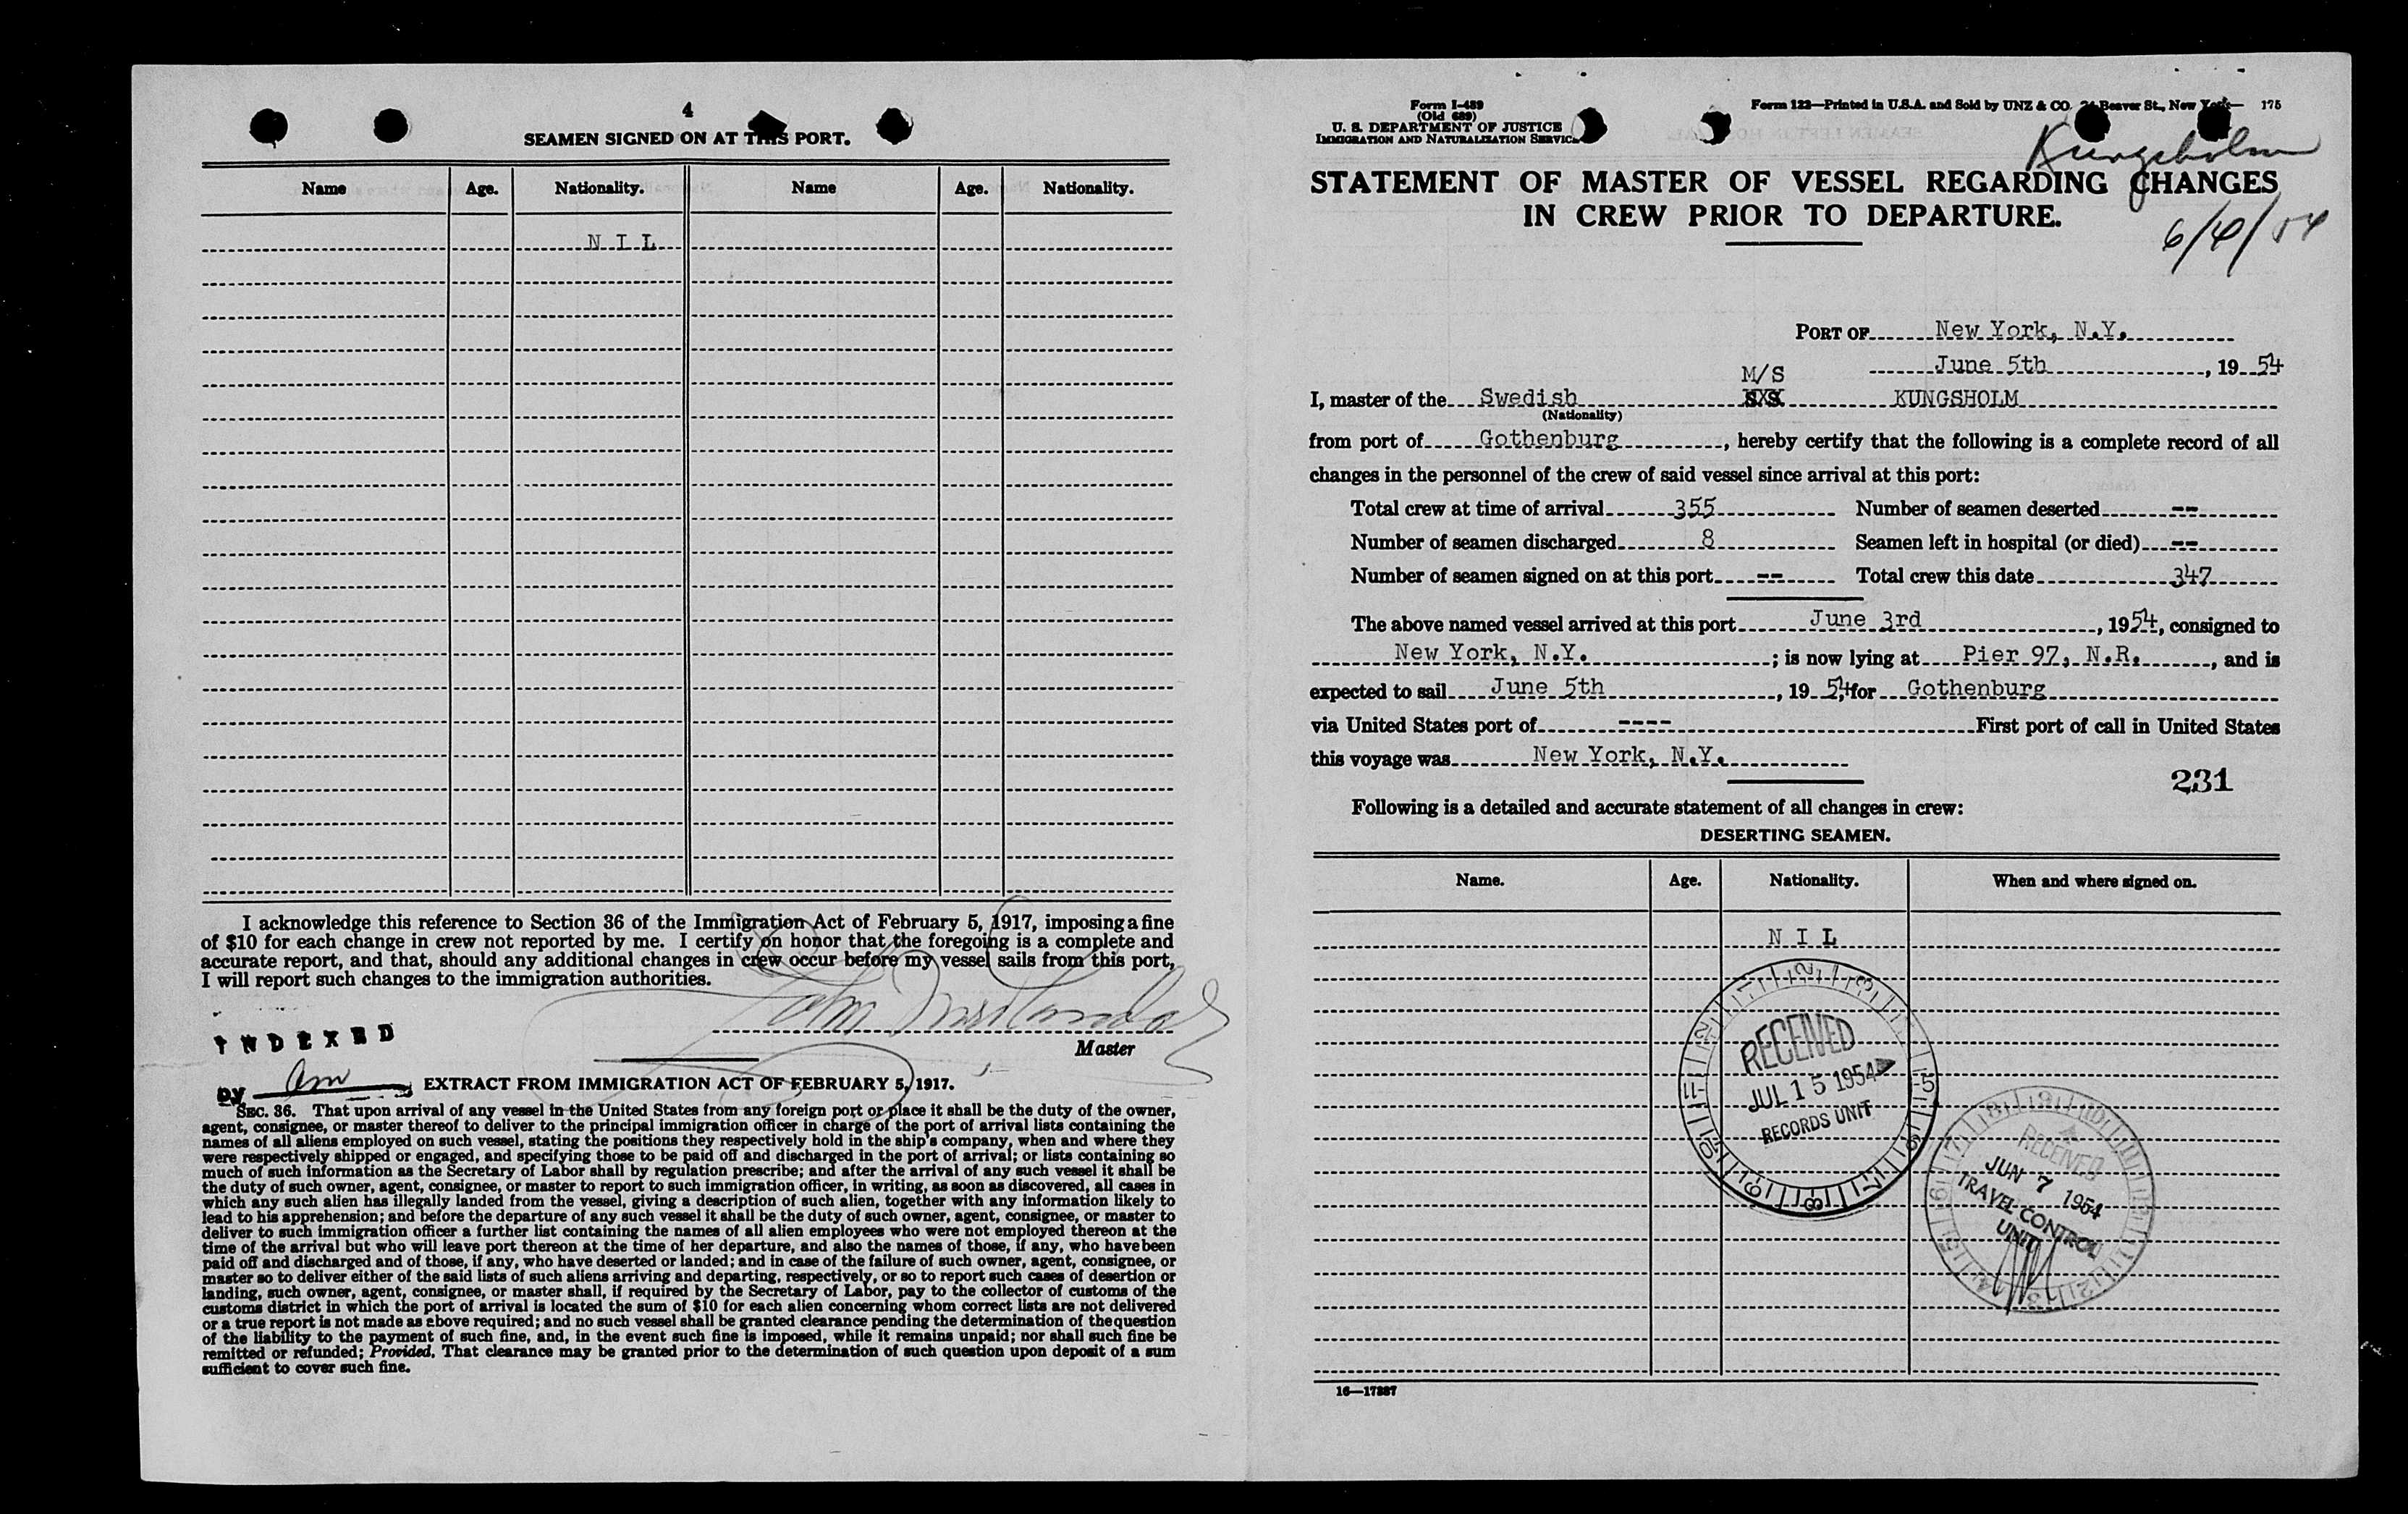 4
SEAMEN SIGNED ON AT THIS PORT.
Name Age. Nationality. Name Age. Nationality.
N I L
I acknowledge this reference to Section 36 of the Immigration Act of February 5, 1917, imposing a fine
of $10 for each change in crew not reported by me. I certify on honor that the foregoing is a complete and
accurate report, and that, should any additional changes in crew occur before my vessel sails from this port,
I will report such changes to the immigration authorities.
INDEXED
Master
by
EXTRACT FROM IMMIGRATION ACT OF FEBRUARY 5, 1917.
SEC. 36. That upon arrival of any vessel in the United States from any foreign port or place it shall be the duty of the owner,
agent, consignee, or master thereof to deliver to the principal immigration officer in charge of the port of arrival lists containing the
names of all aliens employed on such vessel, stating the positions they respectively hold in the ship's company, when and where they
were respectively shipped or engaged, and specifying those to be paid off and discharged in the port of arrival; or lists containing so
much of such information as the Secretary of Labor shall by regulation prescribe; and after the arrival of any such vessel it shall be
the duty of such owner, agent, consignee, or master to report to such immigration officer, in writing, as soon as discovered, all cases in
which any such alien has illegally landed from the vessel, giving a description of such alien, together with any information likely to
lead to his apprehension; and before the departure of any such vessel it shall be the duty of such owner, agent, consignee, or master to
deliver to such immigration officer a further list containing the names of all alien employees who were not employed thereon at the
time of the arrival but who will leave port thereon at the time of her departure, and also the names of those, if any, who have been
paid off and discharged and of those, if any, who have deserted or landed; and in case of the failure of such owner, agent, consignee, or
master so to deliver either of the said lists of such aliens arriving and departing, respectively, or so to report such cases of desertion or
landing, such owner, agent, consignee, or master shall, if required by the Secretary of Labor, pay to the collector of customs of the
customs district in which the port of arrival is located the sum of $10 for each alien concerning whom correct lists are not delivered
or a true report is not made as above required; and no such vessel shall be granted clearance pending the determination of the question
of the liability to the payment of such fine, and, in the event such fine is imposed, while it remains unpaid; nor shall such fine be
remitted or refunded; Provided, That clearance may be granted prior to the determination of such question upon deposit of a sum
sufficient to cover such fine.
Form I-489
(Old 689)
U. S. DEPARTMENT OF JUSTICE
IMMIGRATION AND NATURALIZATION SERVICE
Form 122—Printed in U.S.A. and Sold by UNZ & CO. 24 Beaver St., New York— 175
Kungsholm
STATEMENT OF MASTER OF VESSEL REGARDING CHANGES
IN CREW PRIOR TO DEPARTURE.
6/4/54
PORT OF New York, N.Y.
June 5th, 1954
M/S
I, master of the Swedish SXS KUNGSHOLM
(Nationality)
from port of Gothenburg, hereby certify that the following is a complete record of all
changes in the personnel of the crew of said vessel since arrival at this port:
Total crew at time of arrival 355 Number of seamen deserted --
Number of seamen discharged 8 Seamen left in hospital (or died) --
Number of seamen signed on at this port -- Total crew this date 347
The above named vessel arrived at this port June 3rd, 1954, consigned to
New York, N.Y.; is now lying at Pier 97, N.R., and is
expected to sail June 5th, 1954, for Gothenburg
via United States port of ---- First port of call in United States
this voyage was New York, N.Y.
231
Following is a detailed and accurate statement of all changes in crew:
DESERTING SEAMEN.
Name. Age. Nationality. When and where signed on.
N I L
RECEIVED
JUL 15 1954
RECORDS UNIT
RECEIVED
JUN 7 1954
TRAVEL CONTROL
UNIT
16—17887